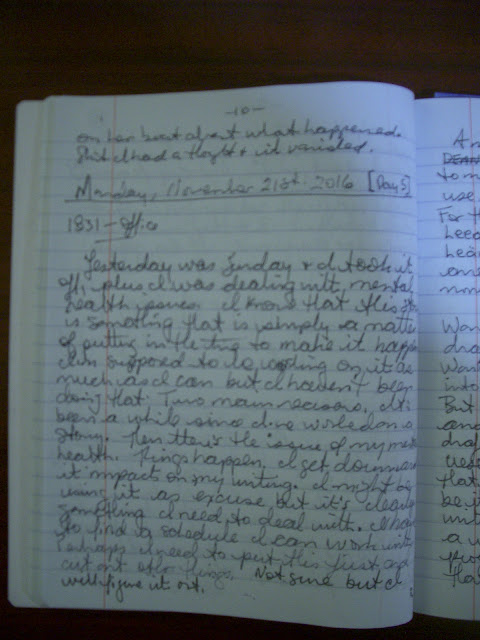 -10-
on her boat about what happened.
Shit I had a thoght + it vanished.
Monday, November 21st 2016 [Day 5]
1831 - Office
Yesterday was Sunday + I took it
off, plus I was dealing with mental
health issues. I know that this
is something that is simply a matter
of putting in the time to make it happen
I'm supposed to be working on it as
much as I can but I haven't been
doing that. Two main reasons,
been a while since I've worked on a
story. Then there's the issue of my
health. Things happen, I get down
it impacts on my writing. I might be
using it as excuse but it's clearly
something I need to deal with. I have
to find a schedule I can work with
Perhaps I need to put this first, and
cut out other things. Not sure but I
will figure it out.
A
DEAR
to m
use
For th
need
one
Wan
dra
Want
into
But
and
draf
need
that
be i
unti
a w
that